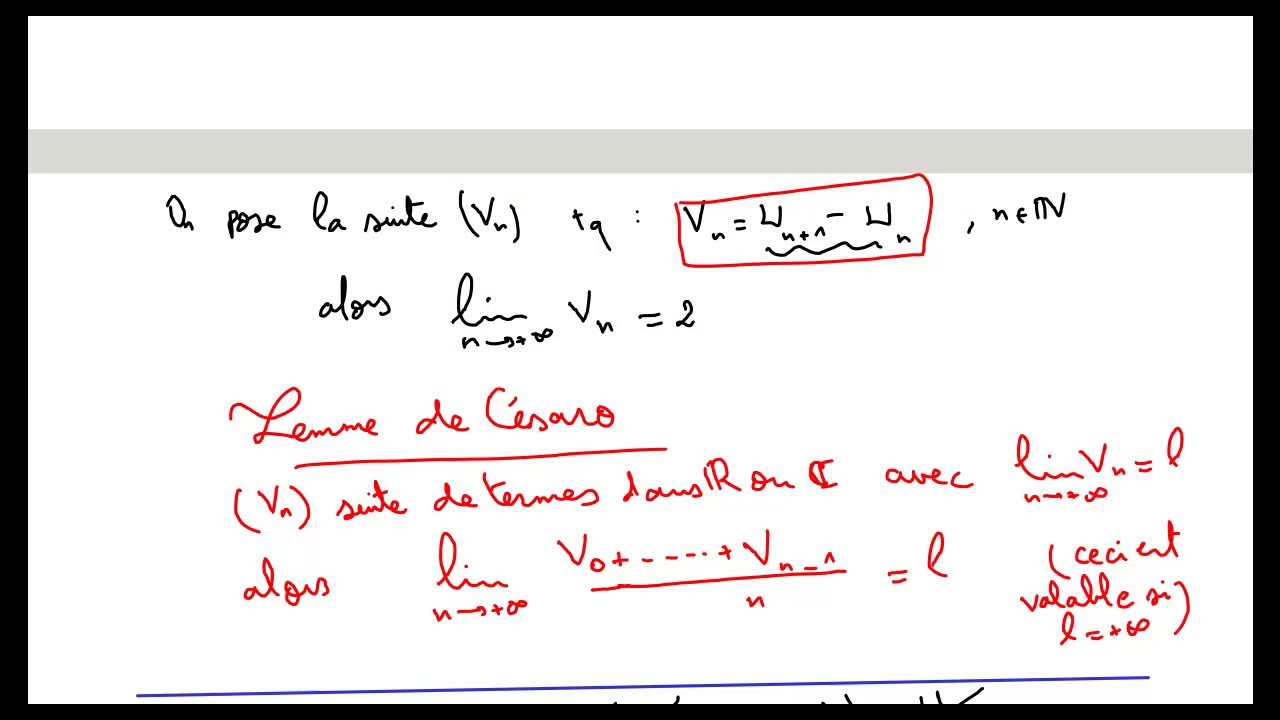 On pose la suite (Vn) tq : Vn = Un+1 - Un , n ∈ ℕ
alors lim n→+∞ Vn = 2
Lemme de Césaro
(Vn) suite de termes dans ℝ ou ℂ avec lim n→+∞ Vn = l
alors lim n→+∞ (V0 + ----- + Vn-1)/n = l (ceci est
valable si
l = +∞)